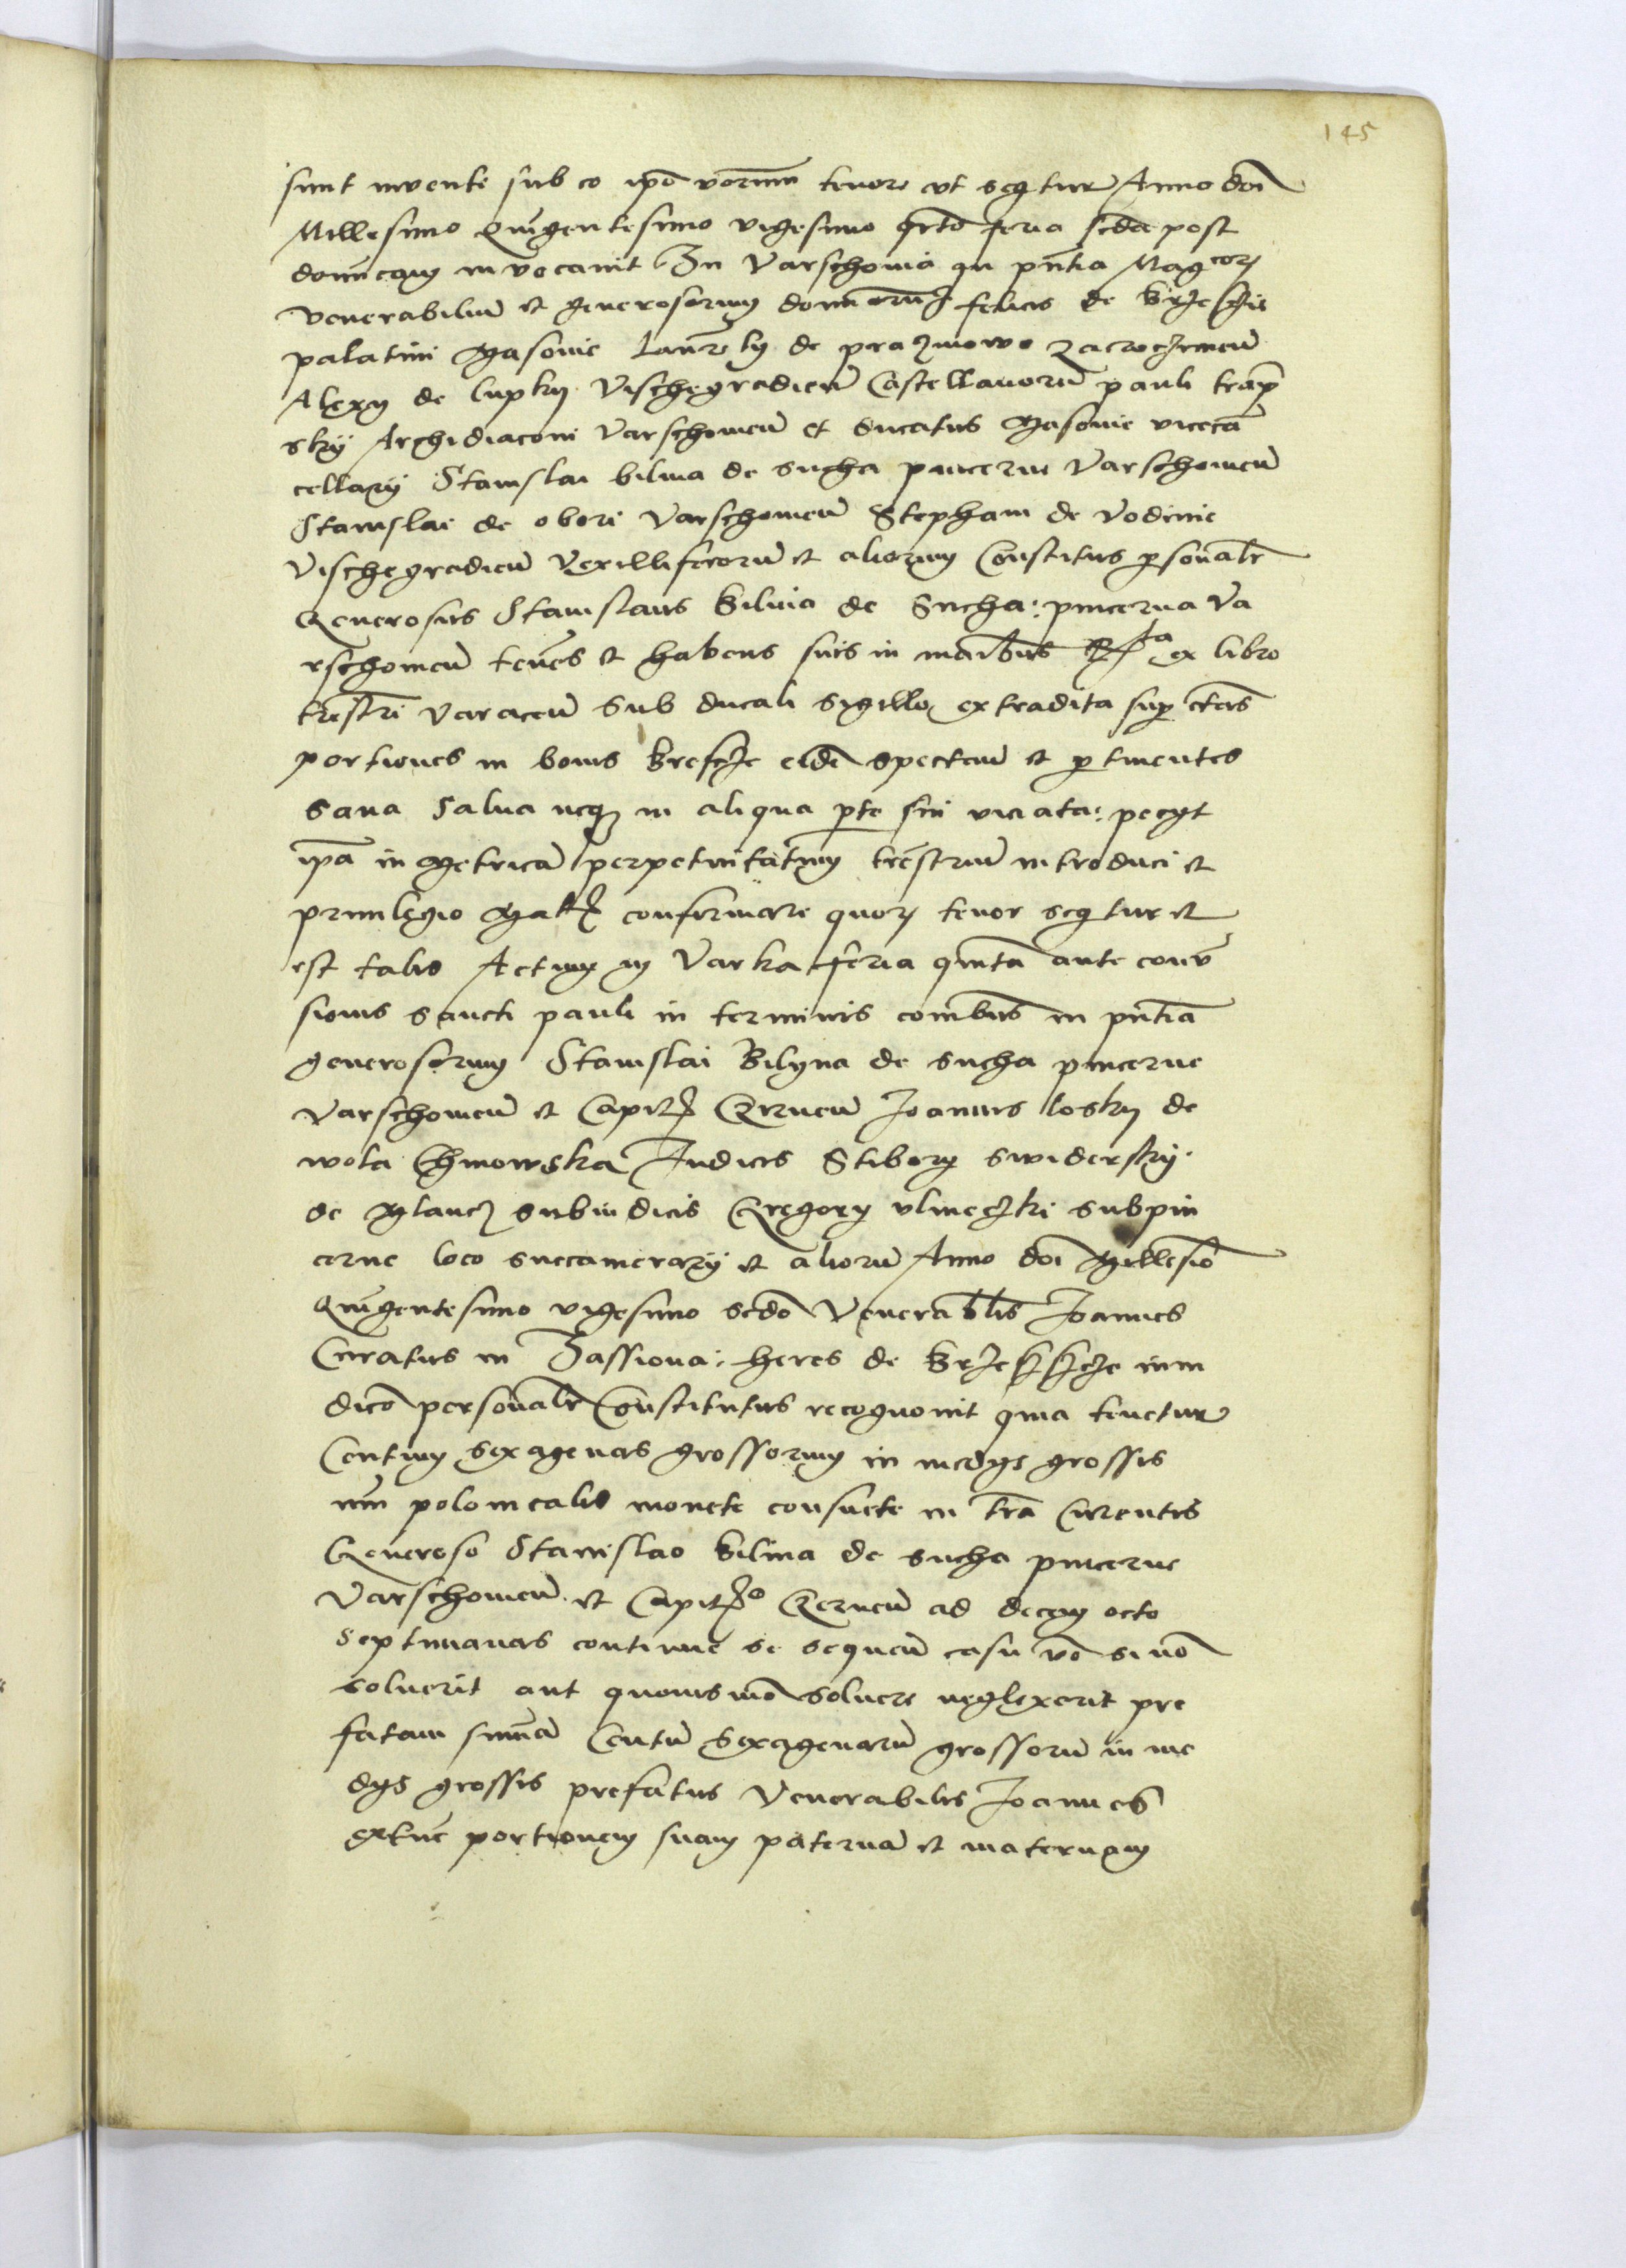 145
sunt invente sub eo ipō vorum tenore ut seqtur Anno doī
Millesimo Quīgentesimo vigesimo qrto feria scda post
domīcam invocavit In Varschovia in pn̄tia Magcorꝫ
venerabiliū et generosorum domīorū felicis de Brzeszcze
palatini Masovie Laurēty de prazmowo zacroczimeñ
Alexy de lupky Vischegradieñ Castellanorū pauli
sky Archidiaconi Varschovieñ et ducatus Masovie vicecā
cellarÿ Stanislai bilina de sucha pincerne Varschovieñ
Stanislai de obori Varschovieñ Stephani de Vodinie
Vischegradieñ Vexilliferorū et aliorum Constitutus psonalr
Generosus Stanislaus Bilina de Sucha: pincerna Va
rschovieñ tenēs et habens suis in maibus ex libro
trestri Varacieñ sub ducali sigillo extradita sup certas
portiones in bonis eidē specteñ et ptinentes
sana salva neqꝫ in aliqua pte sui viciata: pecyt
ipā in Metricā perpetuitatum trestriū introduci et
privilegio confirmare quorꝫ tenor seqtur et
est talis Actum in Varka feria quintā ante conv̄
sionis sancti pauli in terminis coībus in pn̄tia
generosorum Stanislai Bilyna de sucha pincerne
Varschovieñ et Capitei Cerneñ Joannis losky de
wola Chinowska Judicis Stibory swidersky
de subiudicis Gregory subpin
cerne loco succamerarÿ et aliorū Anno doī Millesīo
Quīgentesimo vigesimo scdo Venerablis Joannes
Curatus in Jassiona: heres de in iu
dicō personalr Constitutus recognovit quia tenetur
Centum sexagenas grossorum in medys grossis
nūi polonicalis monete consuete in trā currentis
Generoso Stanislao Bilina de sucha pincerne
Varschovieñ et Capiteo Cerneñ ad decem octo
septimanas continue se sequeñ casu v̄o si nō
solverit aut quovismō solvere neglexerit pre
fatam sūmā Centū sexagenarū grossorū in me
dys grossis prefatus Venerabilis Joannes
extūc portionem suam paternā et maternam